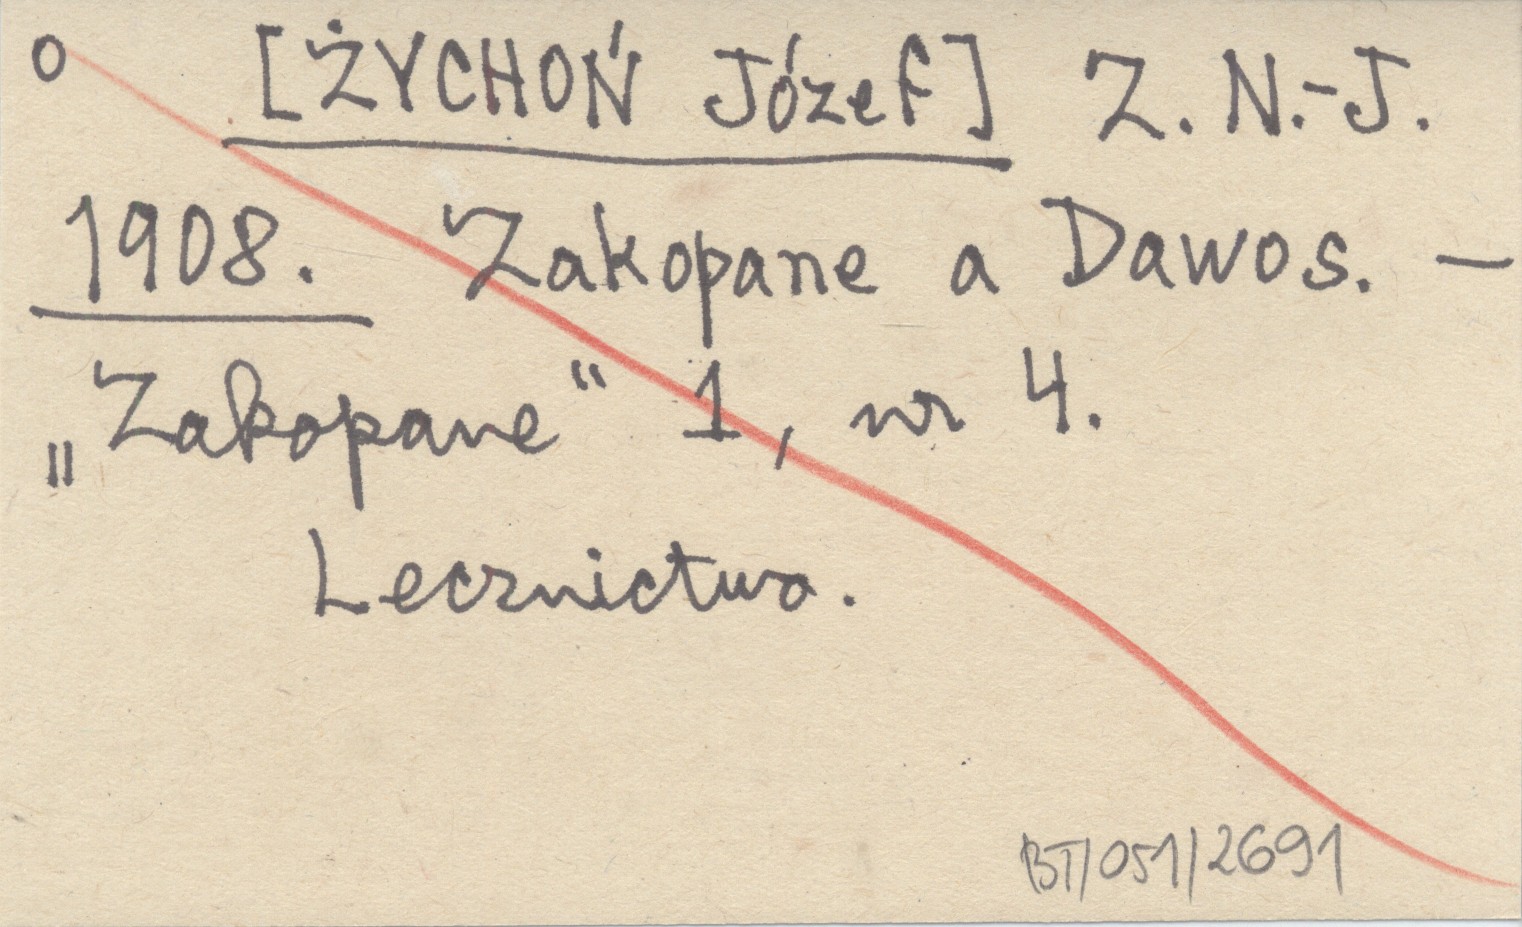 o [ŻYCHOŃ Józef] Z. N.-J.
1908. Zakopane a Dawos. —
„Zakopane“ 1, nr 4.
Lecznictwo.
BT/051/2691